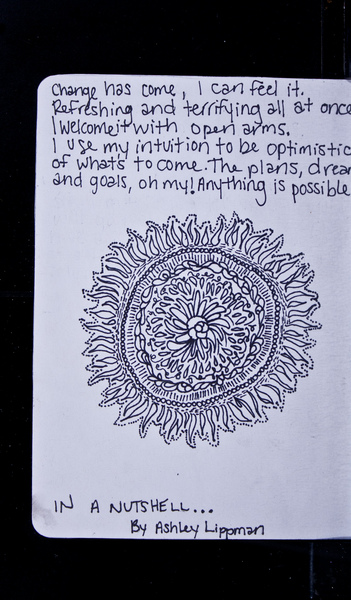 Change has come, I can feel it.
Refreshing and terrifying all at once
I welcome it with open arms.
I use my intuition to be optimistic
of what's to come. The plans, drear
and goals, oh my! Anything is possible
IN A NUTSHELL...
By Ashley Lippman